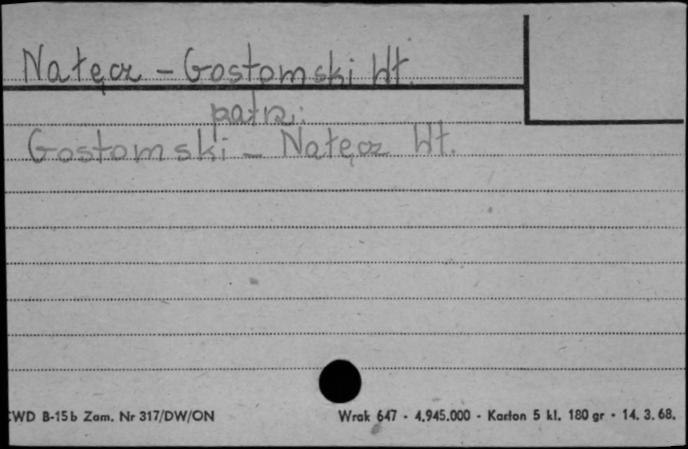 Nałęcz - Gostomski Wł.
patrz:
Gostomski - Nałęcz Wł.
CWD B-15b Zam. Nr 317/DW/ON Wrak 647 - 4.945.000 - Karton 5 kl. 180 gr - 14. 3. 68.